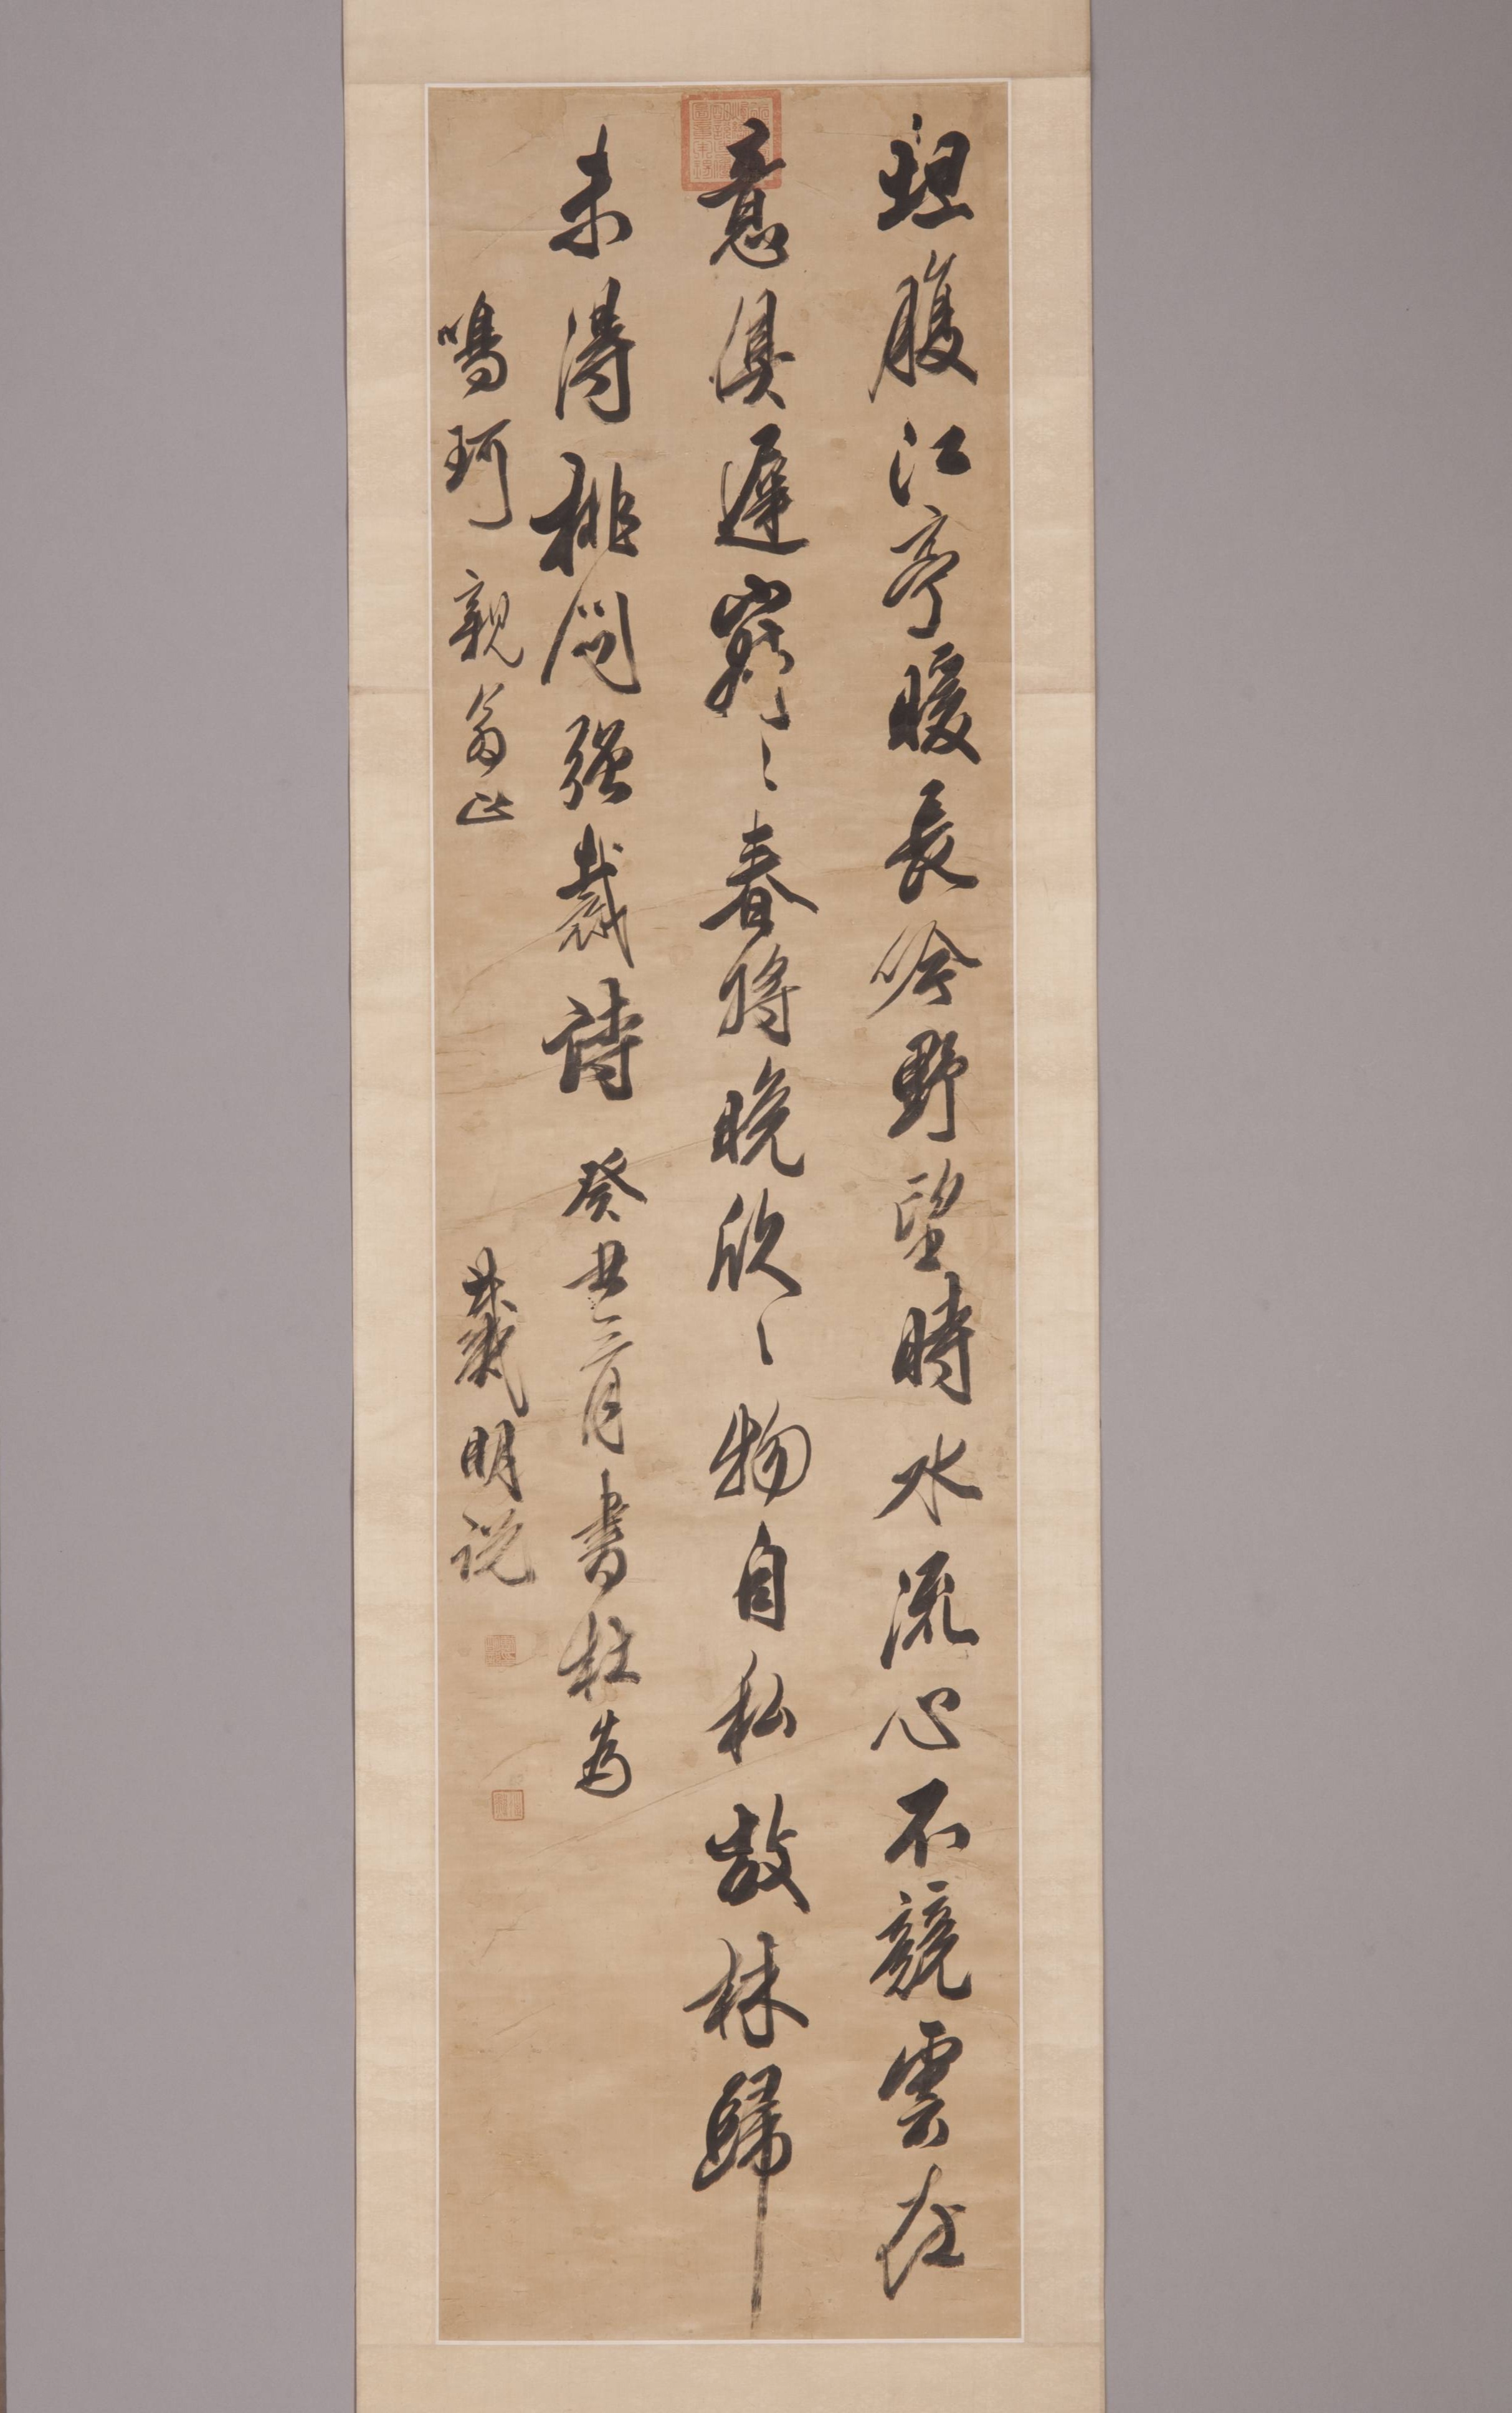 坦腹江亭暖長吟野望時水流心不競雲在
意俱遲寂〻春將晚欣〻物自私故林歸
未得排悶强裁詩 癸丑三月書杜為
鳴珂親翁正 戴明説